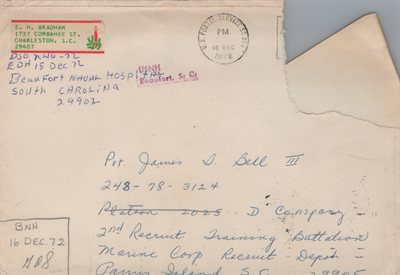 E. H. BRADHAM
1737 COMBAHEE ST.
CHARLESTON, S.C.
29407
EDH 18 Dec 72
Beaufort Naval Hospital
South Carolina
29902
USNH
Beaufort, S. C.
U.S. POSTAL SERVICE
PM
16 DEC
1972
Pvt James D. Bell III
248-78-3124
Platoon 2025 D Company
2nd Recruit Training Battalion
Marine Corp Recruit Depot
Parris Island S.C. 29905
BNH
16 DEC. 72